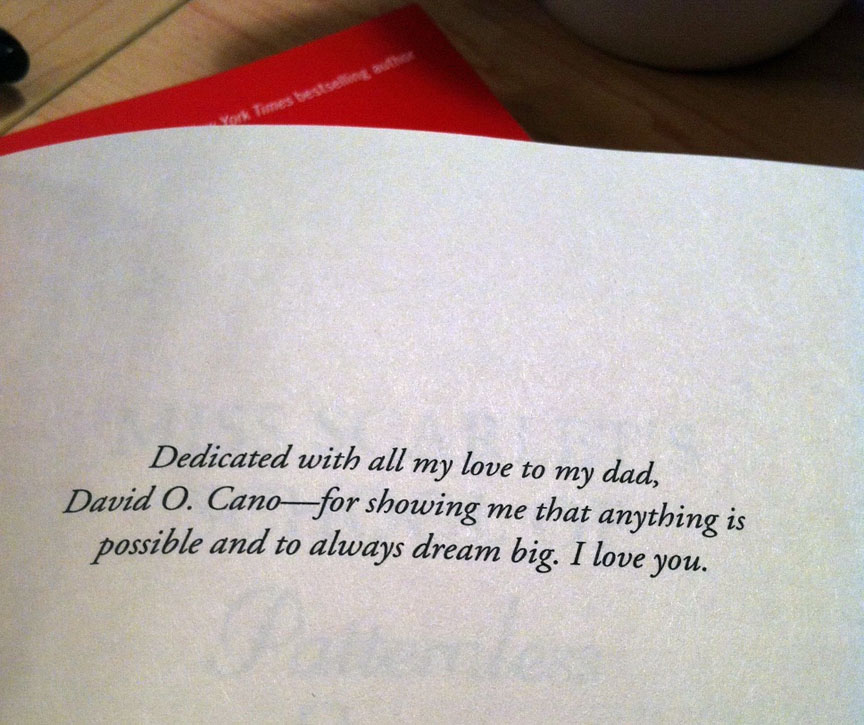 York Times bestselling author
MISS SCARLET'S
Dedicated with all my love to my dad,
David O. Cano—for showing me that anything is
possible and to always dream big. I love you.
Patternless